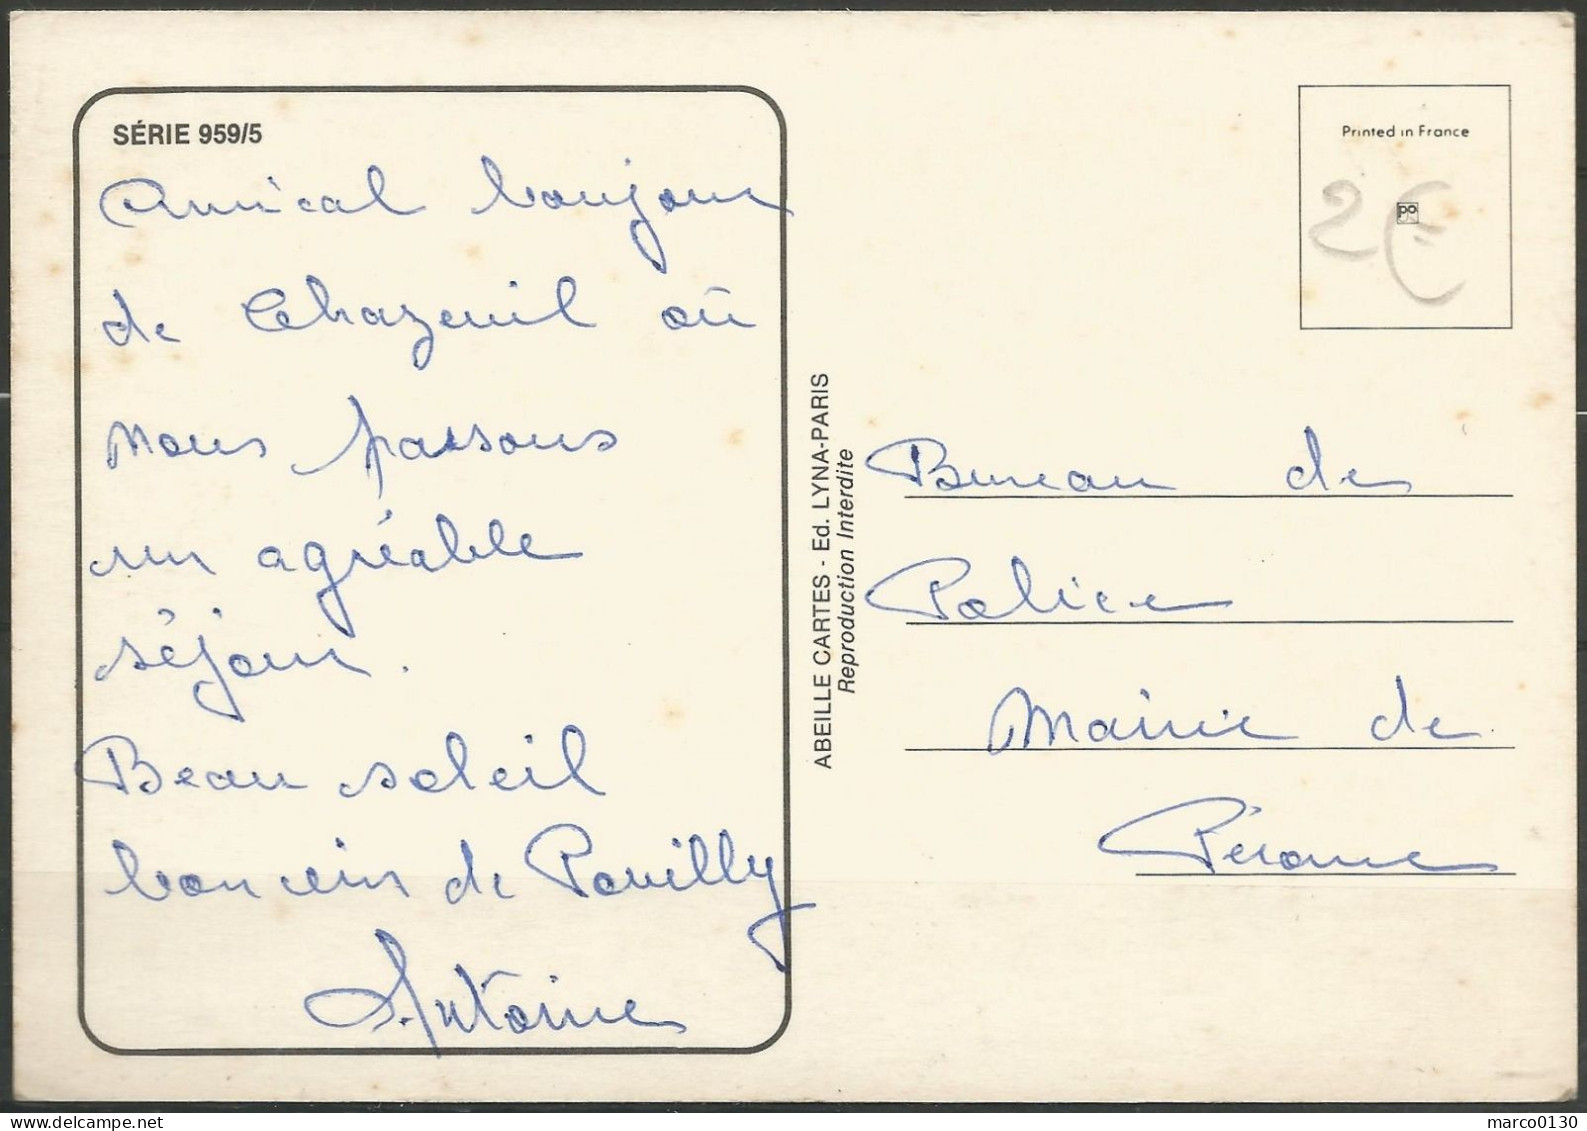 SÉRIE 959/5
Amical bonjour
de Chazeuil où
nous passons
un agréable
séjour.
Beau soleil
bon vin de Pouilly
Antoine
ABEILLE CARTES - Ed. LYNA-PARIS
Reproduction Interdite
Printed in France
po
2€
Bureau de
Police
Mairie de
Péronne
marco0130